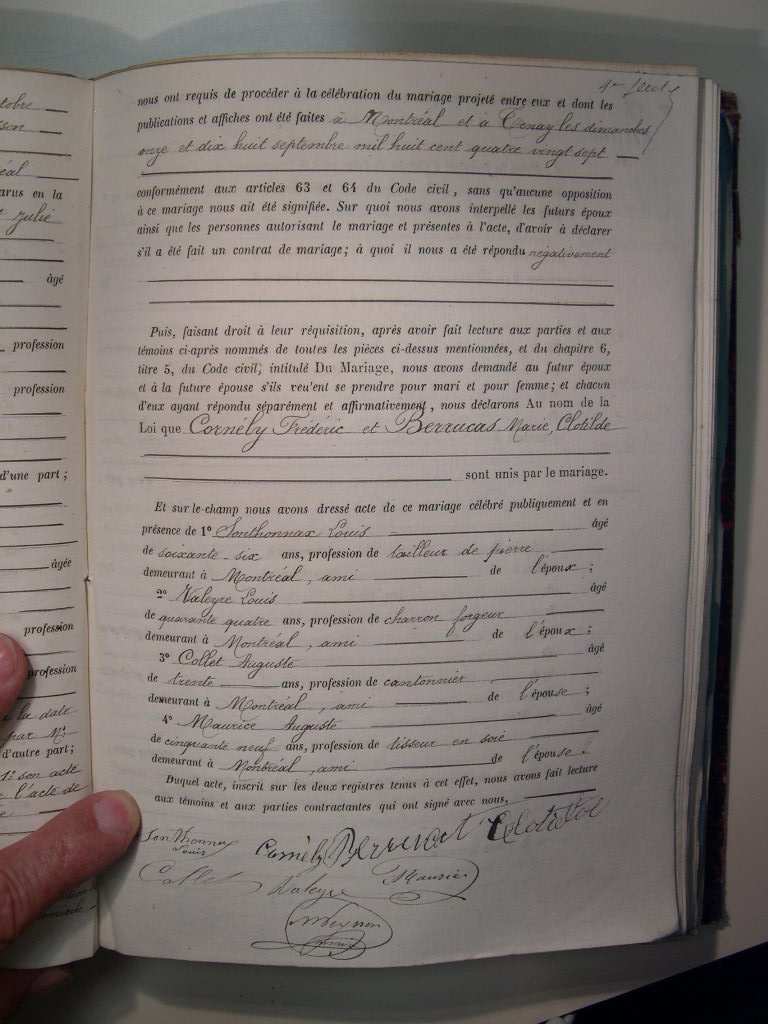 tobre
son
éal
arus en la
Julie
âgé
profession
profession
d'une part;
âgée
profession
profession
à la date
par Mr
d'autre part;
son acte
l'acte de
nous ont requis de procéder à la célébration du mariage projeté entre eux et dont les
publications et affiches ont été faites à Montréal et à Cenay les dimanches
onze et dix huit septembre mil huit cent quatre vingt sept
conformément aux articles 63 et 64 du Code civil, sans qu'aucune opposition
à ce mariage nous ait été signifiée. Sur quoi nous avons interpellé les futurs époux
ainsi que les personnes autorisant le mariage et présentes à l'acte, d'avoir à déclarer
s'il a été fait un contrat de mariage; à quoi il nous a été répondu négativement
Puis, faisant droit à leur réquisition, après avoir fait lecture aux parties et aux
témoins ci-après nommés de toutes les pièces ci-dessus mentionnées, et du chapitre 6,
titre 5, du Code civil, intitulé Du Mariage, nous avons demandé au futur époux
et à la future épouse s'ils veu'ent se prendre pour mari et pour femme; et chacun
d'eux ayant répondu séparément et affirmativement, nous déclarons Au nom de la
Loi que Cornély Frédéric et Berrucas Marie, Clotilde
sont unis par le mariage.
Et sur-le-champ nous avons dressé acte de ce mariage célébré publiquement et en
présence de 1º Sonthonnax Louis âgé
de soixante-six ans, profession de tailleur de pierre
demeurant à Montréal, ami de l'époux;
2º Valeyre Louis âgé
de quarante quatre ans, profession de charron forgeur
demeurant à Montréal, ami de l'époux;
3º Collet Auguste âgé
de trente ans, profession de cantonnier
demeurant à Montréal, ami de l'épouse;
4º Maurice Auguste âgé
de cinquante neuf ans, profession de tisseur en soie
demeurant à Montréal, ami de l'épouse.
Duquel acte, inscrit sur les deux registres tenus à cet effet, nous avons fait lecture
aux témoins et aux parties contractantes qui ont signé avec nous.
Sonthonnax Cornély Clotilde
Louis
Collet Valeyre Maurice